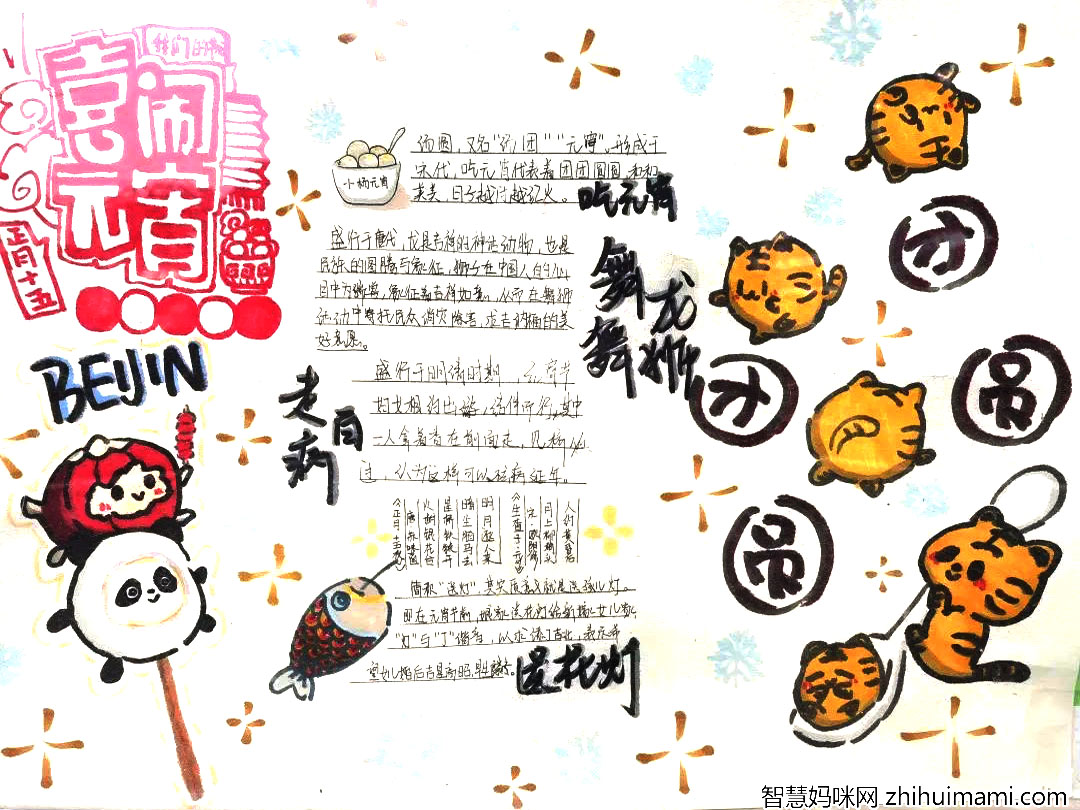 我们的
喜闹
元宵
正月十五
BEIJIN
小杨元宵
汤圆，又名"汤团""元宵"。形成于
宋代，吃元宵代表着团团圆圆，和和
美美，日子越过越红火。
吃元宵
盛行于唐代，龙是吉祥的神话动物，也是
民族的图腾与象征，狮子在中国人的心
目中为瑞兽，象征着吉祥如意，从而在舞狮
活动中寄托民众消灾除害，求吉纳福的美
好意愿。
舞龙
舞狮
盛行于明清时期，元宵节
妇女相约出游，结伴而行，其中
一人拿着香在前面走，见桥必
过，认为这样可以祛病延年。
走百病
简称"送灯"，其实质意义就是送孩儿灯。
即在元宵节前，娘家送花灯给新嫁女儿家，
"灯"与"丁"谐音，以求添丁吉兆，表示希
望女儿婚后吉星高照，早生麟子。
送花灯
团
团
圆
圆
智慧妈咪网 zhihuimami.com